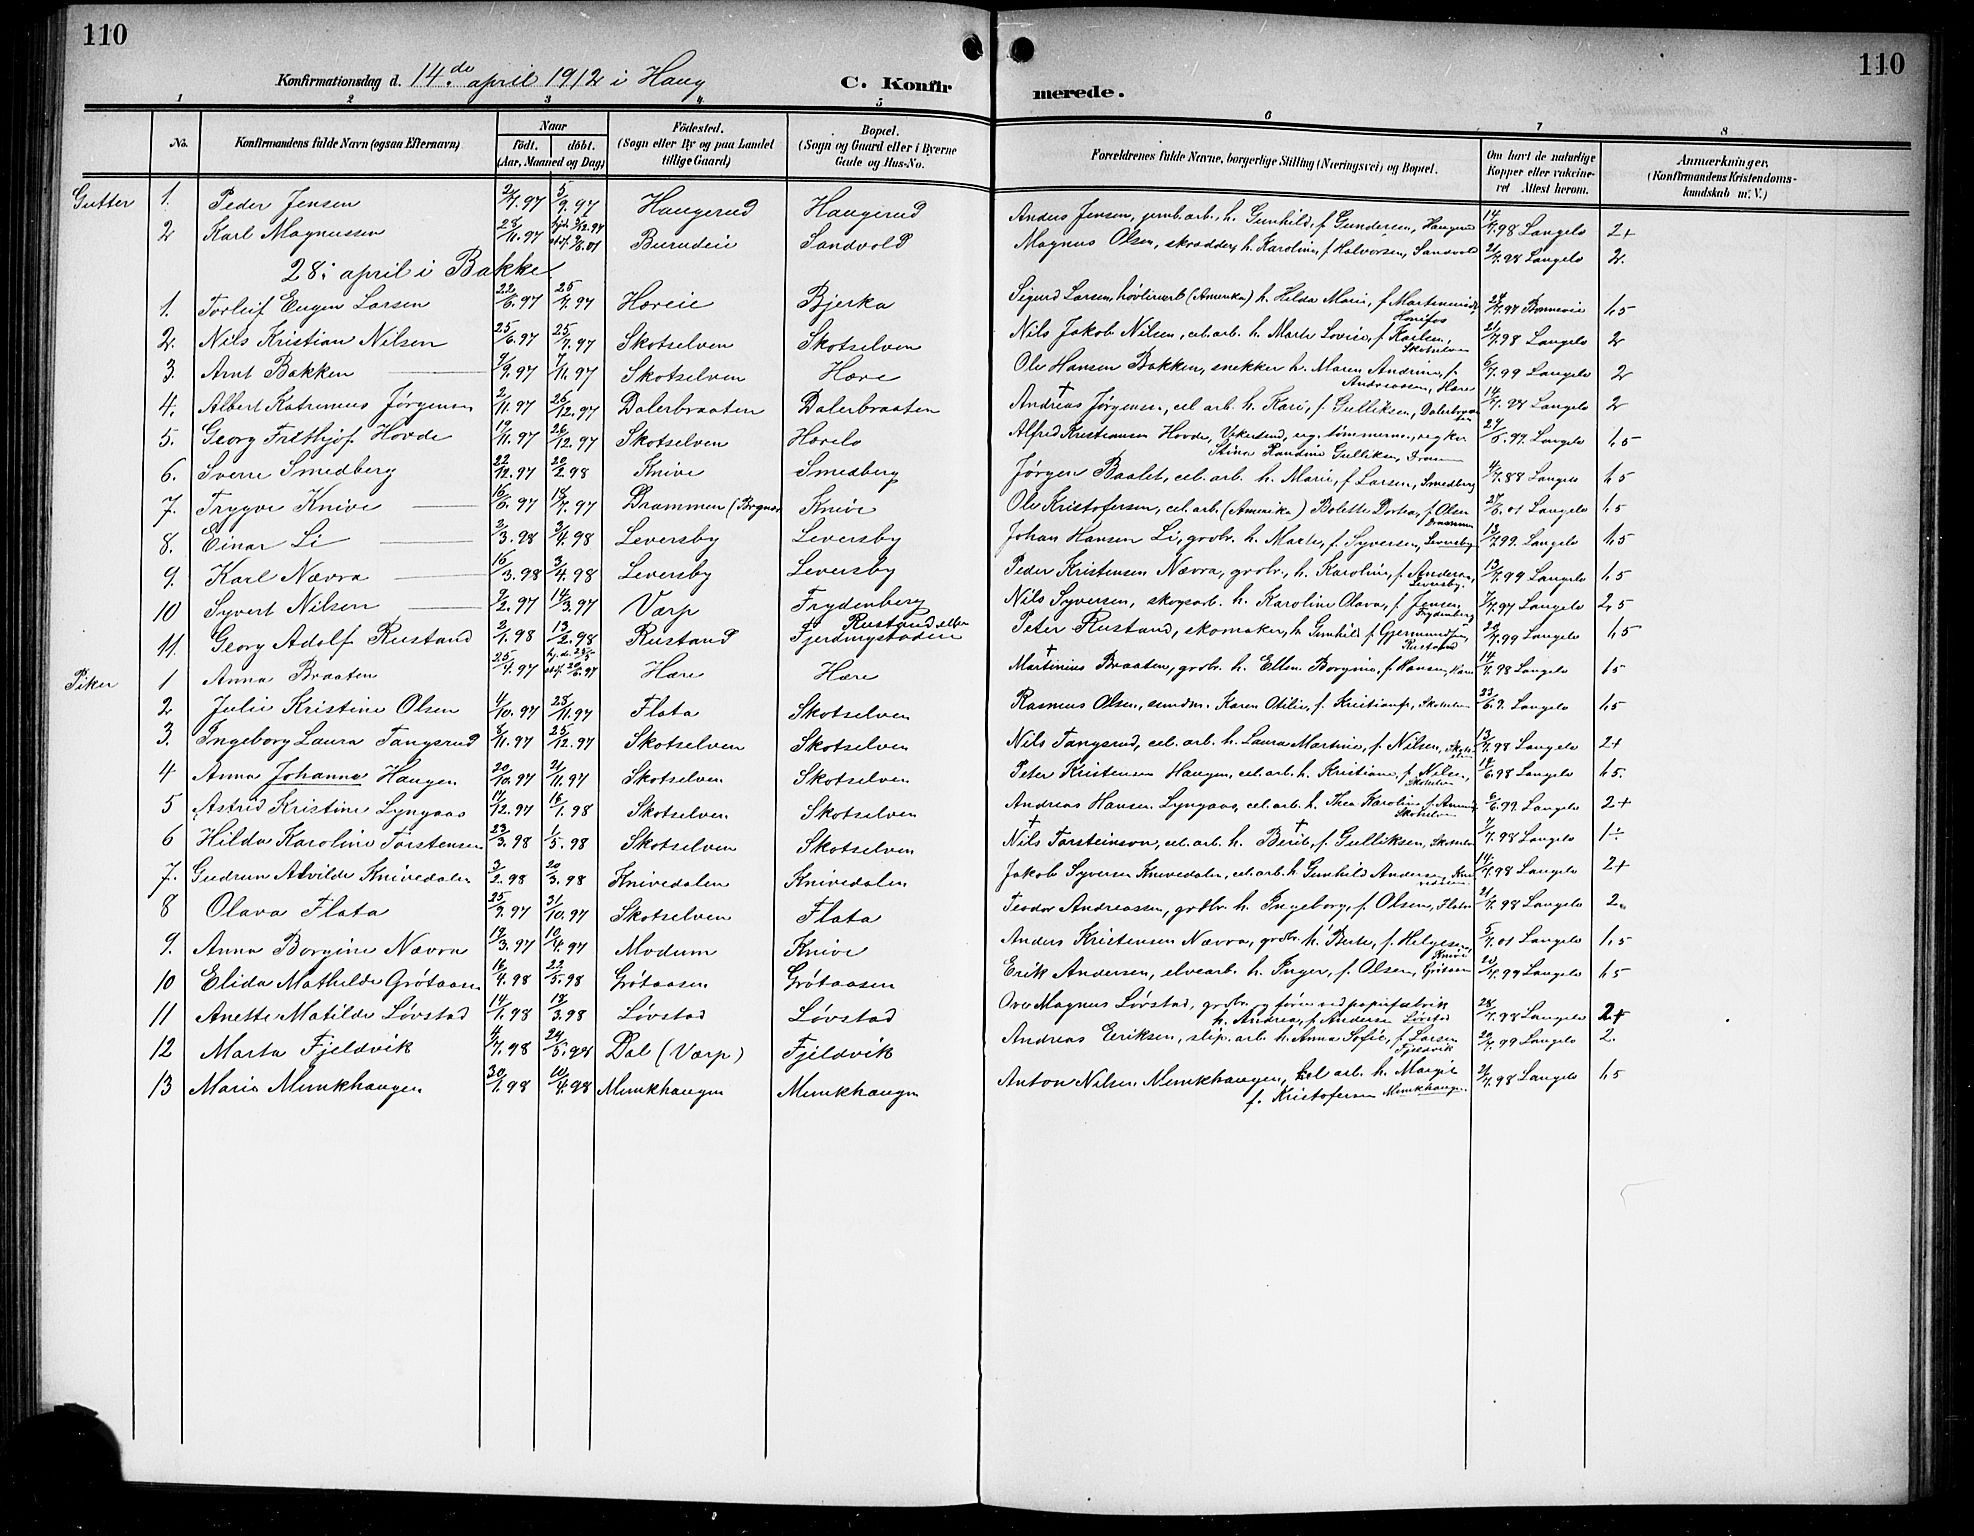 110
110
Konfirmationsdag d. 14.de april 1912 i Haug C. Konfirmerede.
1 2 3 4 5 6 7 8
No. Konfirmandens fulde Navn (ogsaa Efternavn) Naar født. døbt. (Aar, Maaned og Dag) Fødested. (Sogn eller By og paa Landet tillige Gaard) Bopæl. (Sogn og Gaard eller i Byerne Gade og Hus-No. Forældrenes fulde Navne, borgerlige Stilling (Næringsvei) og Bopæl. Om havt de naturlige Kopper eller vakcineret Attest herom. Anmærkninger. (Konfirmandens Kristendomskundskab m. V.)
Gutter 1. Peder Jensen 2/7.97 5/9.97 Haugerud Haugerud Anders Jensen, jernb.arb., h. Gunhild, f. Gundersen, Haugerud 14/7.98 Langelo 2+
2 Karl Magnussen 28/11.97 Burudeie Sandvold Magnus Olsen, skrædder, h. Karoline, f. Halvorsen, Sandvold Langelo 2.
28: april i Bakke.
1. Torleif Eugen Larsen 22/6.97 25/7.97 Hæreie Bjerka Sigurd Larsen, (Amerika) h. Hilda Marie, f. Hønefos 1,5
2. Nils Kristian Nilsen 25/6.97 25/7.97 Skotselven Skotselven Nils Jakob Nilsen, cel.arb. h. Marte Lovise, f. Karlsen, Skotselven 21/7.98 Langelo 2
3. Arnt Bakken 9/9.97 7/11.97 Skotselven Hære Ole Hansen Bakken, snekker h. Maren Andrine, f. Andreassen, Hære 6/7.99 Langelo 2
4. Albert Katrinus Jørgensen 2/11.97 26/12.97 Dalerbraaten Dalerbraaten Andreas Jørgensen, cel.arb. h. Kari, f. Gulliksen, Dalerbraaten Langelo 2
5. Georg Frithjof Hovde 19/11.97 26/12.97 Skotselven Hærelo Alfred Kristiansen Hovde, Stina Randine Gulliksen, Langelo 1,5
6. Sverre Smedberg 22/12.97 20/2.98 Knive Smedberg Jørgen cel.arb. h. Marie, f. Larsen, Smedberg Langelo 1,5
7. Trygve Knive 16/6.97 18/7.97 Drammen Knive Ole Kristofersen, cel.arb. (Amerika) Bolette Dortea, f. Olsen Drammen 27/6.01 Langelo 1,5
8. Einar Li 2/3.98 3/4.98 Leversby Leversby Johan Hansen Li, grdbr. h. Marte, f. Syversen, Leversby 13/7.99. Langelo 1,5
9. Karl Nævra 16/3.98 3/4.98 Leversby Leversby Peder Kristensen Nævra, grdbr., h. Karoline, f. Andersen, Leversby. 13/7.99 Langelo 1,5
10 Syvert Nilsen 9/2.97 14/3.97 Varp Frydenberg Nils Syversen, skogsarb. h. Karoline Olava, f. Jensen, Frydenberg Langelo 2,5
11. Georg Adolf Rustand 2/1.98 13/2.98 Rustand Rustand eller Fjerdingstadeie Peter Rustand, skomaker, h. Gunhild f. Gjermundsen, Rustand 20/7.99 Langelo 1,5
Piker 1 Anna Braaten 25/4.97 Hære Hære Martinius Braaten, grdbr. h. Ellen Borgine, f. Hansen, Hære 14/7.98 Langelo 1,5
2 Julie Kristine Olsen 4/10.97 28/11.97 Flata Skotselven Rasmus Olsen, Karen Otilie, f. Langelo 1,5
3. Ingeborg Laura Tangsrud 8/11.97 25/12.97 Skotselven Skotselven Nils Tangsrud, cel.arb. h. Laura Martine, f. Nilsen, 13/7.98 Langelo 2+
4 Anna Johanna Haugen 20/10.97 21/11.97 Skotselven Skotselven Peter Kristensen Haugen, cel.arb. h. Kristiane, f. Nilsen, Skotselven 14/6.98 Langelo 1,5.
5 Astrid Kristine Lyngaas 17/12.97 16/1.98 Skotselven Skotselven Andreas Hansen Lyngaas, cel.arb. h. Thea Karoline, f. Skotselven 6/6.99 Langelo 2+
6 Hilda Karoline Torstensen 23/3.98 1/5.98 Skotselven Skotselven Nils Torsteinson, cel.arb. h. Berit, f. Gulliksen, Skotselven 7/7.98 Langelo 1÷
7. Gudrun Alvilde Knivedalen 3/2.98 20/3.98 Knivedalen Knivedalen Jakob Syversen Knivedalen, cel.arb. h. Gunhild Andersen, 14/7.98 Langelo 2+
8 Olava Flata 25/9.97 31/10.97 Skotselven Flata Teodor Andreassen, grdbr. h. Ingeborg, f. Olsen, Flata 21/7.98 Langelo 2.
9. Anna Borgine Nævra 19/3.97 19/4.97 Modum Knive Anders Kristensen Nævra, grdbr. h. Berte, f. Helgesen, Knive 5/7.01 Langelo 1,5
10 Elida Mathilde Grøtaasen 16/4.98 22/5.98 Grøtaasen Grøtaasen Erik Andersen, elvearb. h. Inger, f. Olsen, 20/7.99 Langelo 1,5
11 Anette Matilde Løvstad 14/1.98 13/3.98 Løvstad Løvstad Ove Magnus Løvstad, grdbr. og fører ved papirfabrik h. Andrea, f. Andersen Løvstad 28/7.98 Langelo 2+
12 Marta Fjeldvik 4/4.98 Dal (Varp) Fjeldvik Andreas Eriksen, slip.arb. h. Anna Sofie, f. Larsen Fjeldvik 20/7.99 Langelo 2.
13 Marie Munkhaugen 30/1.98 10/4.98 Munkhaugen Munkhaugen Anton Nilsen Munkhaugen, cel arb. h. Margit f. Kristofersen Munkhaugen 21/7.98 Langelo 1,5